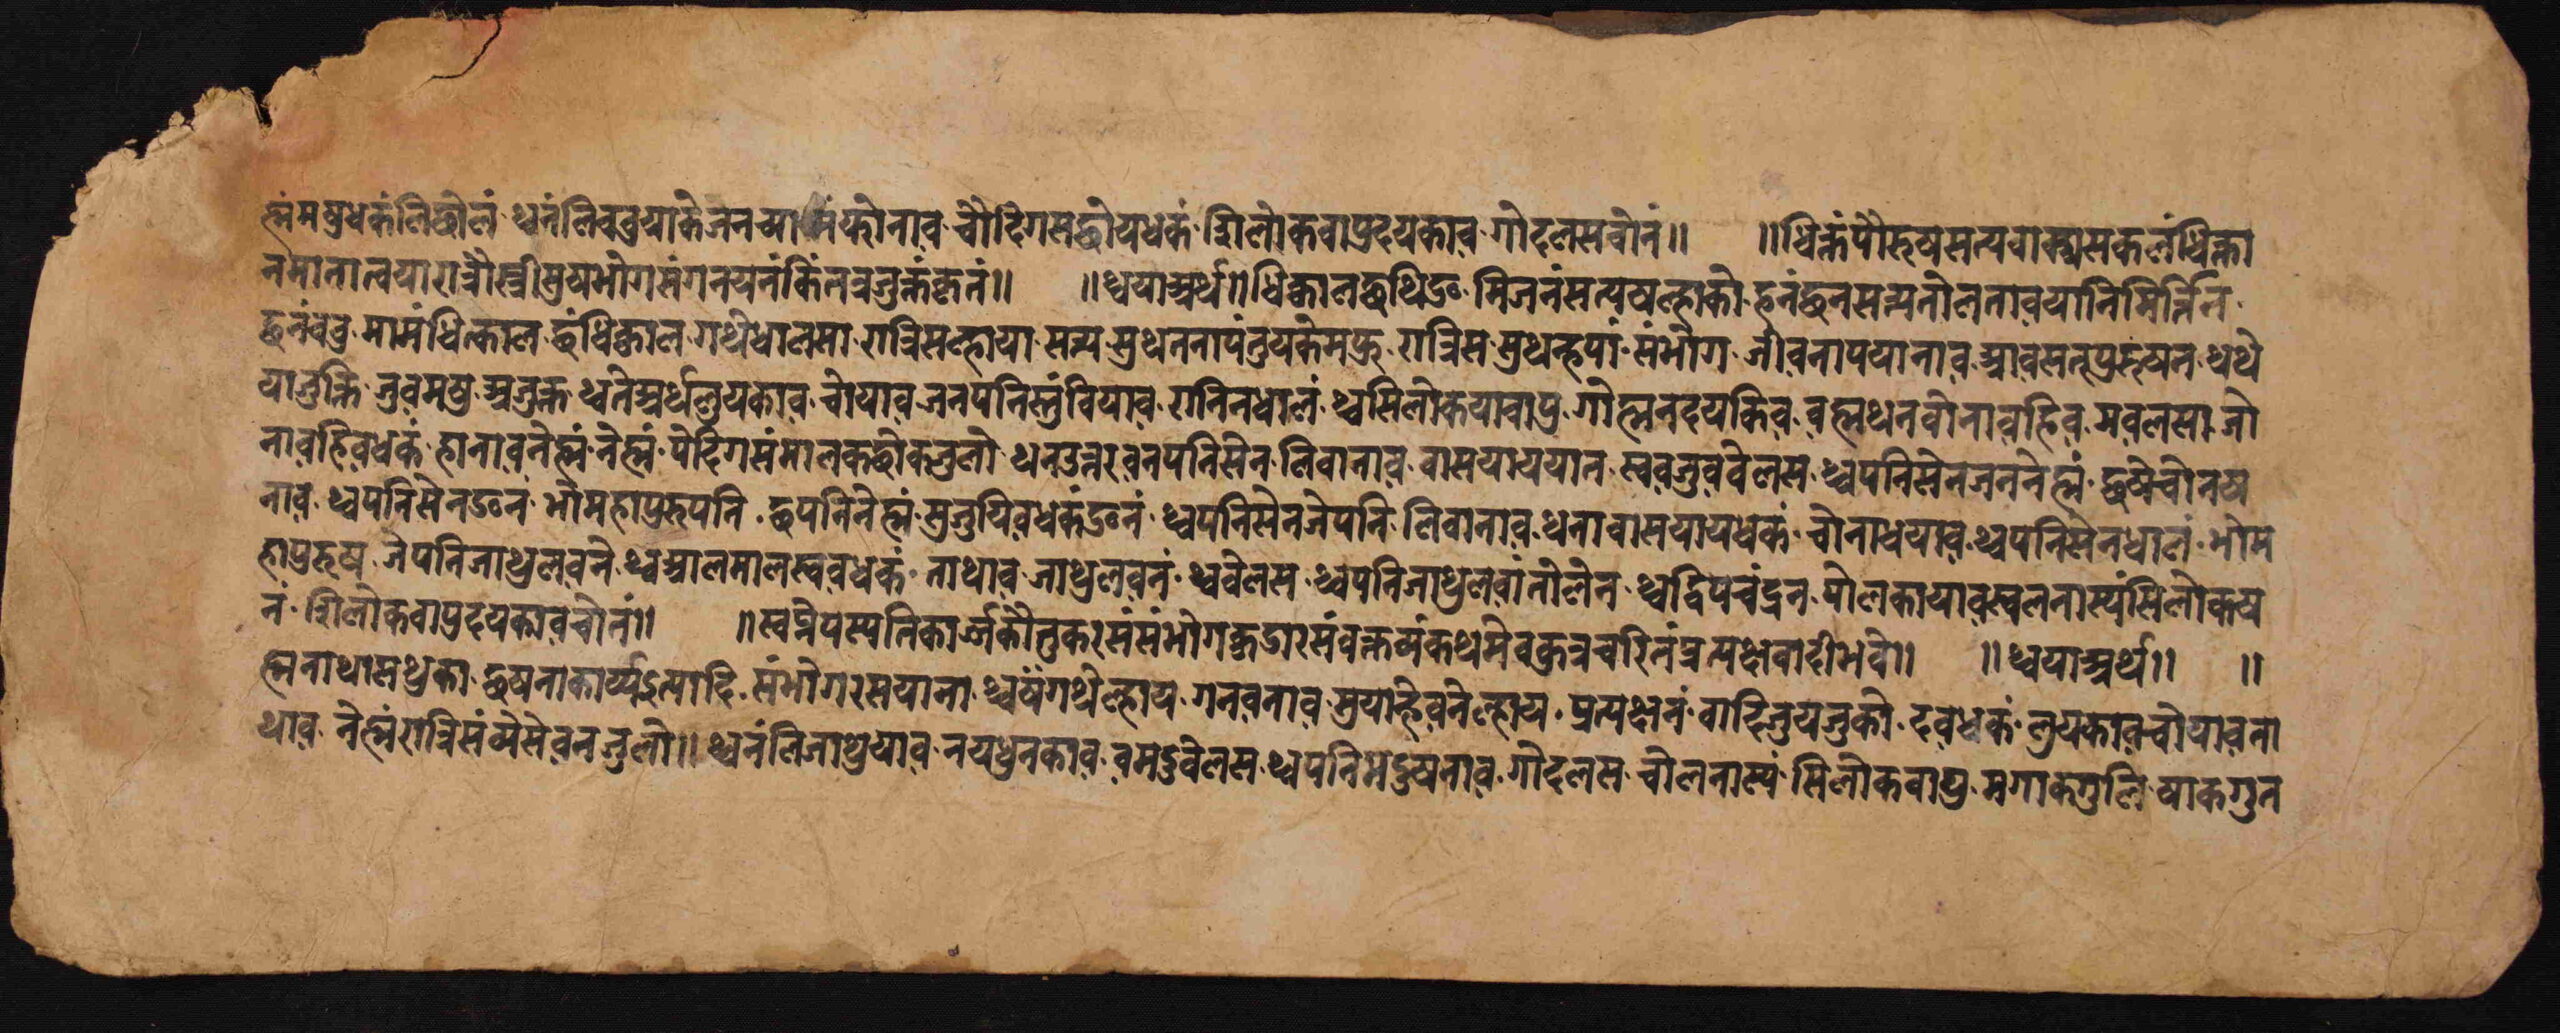 ह्मंमषुधकंलिछोलं थ्वनंलिववुयाकेजन फोनाव चौदिगसछोयधकं शिलोकवाप्रदयकाव गोदलसचोनं॥ ॥धिक्तंपौरुषसत्यवाक्यसकलंधिक्ता
नमानात्वयारात्रौस्त्रीसुषभोगसंगनयनंकिंतत्रजुक्तंकृतं॥ ॥थ्वयाअर्थ॥धिक्कालछथिङ मिजनंसत्यषल्हाको हनंछनसत्यनोलतावयानिमित्तिन
छनंववु मामंधित्काल छंधिक्काल गथेधालसा रात्रिसल्हाया सत्य सुथनतनापंतुयकेमफु रात्रिस सुथन्हपां संभोग जीवनापयानाव आवसतपुरुषन थथे
याजुक्ति जुवमषु अजुक्त थ्वतेअर्थलुयकाव चोयाव जनपनिस्तुंवियाव रानिनधालं थ्वसिलोकयावाप्र गोह्मनदयकिव वह्मथनवोनावहिव मवलसा जो
नावहिवधकं हानावनेह्मं नेह्मं पेदिगसंमालकछोकजुलो थनउत्तरवनपनिसेन लिवानाव वासयाययात स्ववजुववेलस थ्वपनिसेनजननेह्मं छषेचोनष
नाव थ्वपनिसेनङनं भोमहापुरुपनि छपनिनेह्मं सुजुयिवधकंङनं थ्वपनिसेनजेपनि लिवानाव थनावासयायधकं चोनाधयाव थ्वपनिसेनधालं भोम
हापुरुष जेपनिजाथुलवने थ्वआलमालस्ववधकं नाथाव जाथुलवनं थ्ववेलस थ्वपनिजाथुलवांतोलेन थ्वद्विपचंद्रन पोलकायावस्वलनास्यंसिलोकष
नं शिलोकवाप्रदयकावचोनं॥ ॥स्वप्नेपस्यतिकार्ज्जकौतुकरसंसंभोगकृडारसंवक्तव्यंकथमेवकुत्रचरितंप्रत्यक्षवादीभवे॥ ॥थ्वयाअर्थ॥ ॥
ह्मनाथासथुका छषनाकार्य्यइत्यादि संभोगरसयाना थ्वषंगथेल्हाय गनवनाव सुयाह्नेवनेल्हाय प्रत्यक्षनं वादिजुयजुको दवधकं लुयकावचोयावना
थाव नेह्मंरात्रिसंव्मंसेवनजुलो॥ थ्वनंलिजाथुयाव नयधुनकाव वमङुवेलस थ्वपनिमदुषनाव गोदलस चोलनास्यं सिलोकवाप्र मगाकगुलि षाकगुन